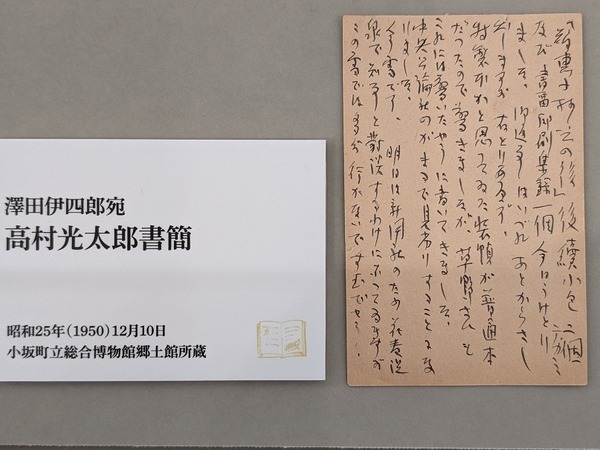 澤田伊四郎宛
高村光太郎書簡
昭和25年(1950)12月10日
小坂町立総合博物館郷土館所蔵
「智恵子抄その後」後續小包二個
及び 一個 今日うけとり
ました、御返事はいづれあとからさし
出しますが右とりあへず、
特製本かと思つてゐた装幀が普通本
だつたので驚きましたが草野さんも
これには驚いたやうに書いてきました。
中央公論社のがまるで見劣りすることにな
りました。
雪です、明日は新聞社のため花巻温
泉で と対談するわけになつてゐますが
この雪では多分行かないですむでせう、